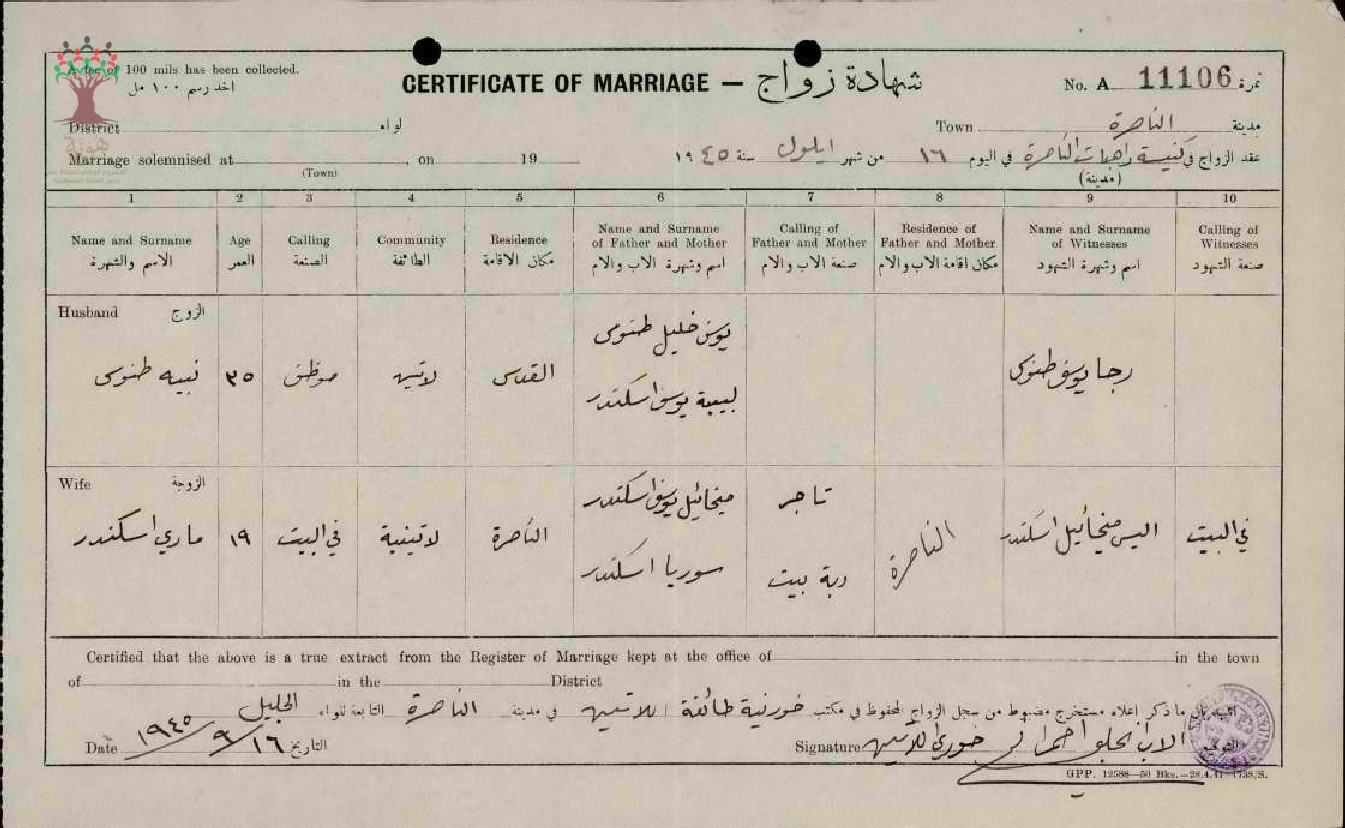 A fee of 100 mils has been collected.
اخذ رسم ١٠٠ مل
CERTIFICATE OF MARRIAGE — شهادة زواج
No. A 11106 نمرة
District لواء
Town الناصرة مدينة
Marriage solemnised at , on 19
(Town)
عقد الزواج في كنيسة راهبات الناصرة في اليوم ١٦ من شهر ايلول سنة ١٩٤٥
(مدينة)
1 2 3 4 5 6 7 8 9 10
Name and Surname
الاسم والشهرة
Age
العمر
Calling
الصنعة
Community
الطائفة
Residence
مكان الاقامة
Name and Surname
of Father and Mother
اسم وشهرة الاب والام
Calling of
Father and Mother
صنعة الاب والام
Residence of
Father and Mother
مكان اقامة الاب والام
Name and Surname
of Witnesses
اسم وشهرة الشهود
Calling of
Witnesses
صنعة الشهود
Husband الزوج
نبيه طنوس
٣٥
موظف
لاتين
القدس
يوسف خليل طنوس
لبيبة يوسف اسكندر
رجا يوسف طنوس
Wife الزوجة
ماري اسكندر
١٩
في البيت
لاتينية
الناصرة
ميخائيل يوسف اسكندر
سوريا اسكندر
تاجر
ربة بيت
الناصرة
اليس ميخائيل اسكندر
في البيت
Certified that the above is a true extract from the Register of Marriage kept at the office of in the town
of in the District
ما ذكر اعلاه مستخرج مضبوط من سجل الزواج المحفوظ في مكتب خورنية طائفة اللاتين في مدينة الناصرة التابعة للواء الجليل
Date ١٦/٩/١٩٤٥ التاريخ
Signature خوري اللاتين الاب
GPP. 12588—50 Bks.—28.4.41
هوية